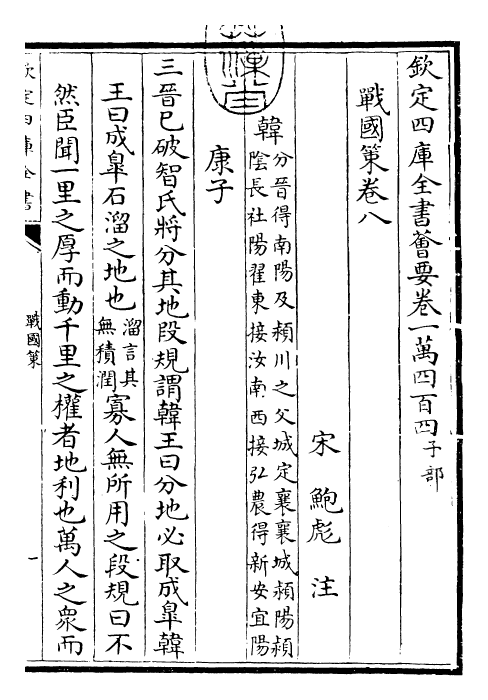 欽定四庫全書薈要卷一萬四百四子部
戰國策卷八
宋鮑彪注
韓分晉得南陽及潁川之父城定襄襄城潁陽潁
陰長社陽翟東接汝南西接弘農得新安宜陽
康子
三晉已破智氏將分其地段規謂韓王曰分地必取成臯韓
王曰成臯石溜之地也溜言其
無積潤寡人無所用之段規曰不
然臣聞一里之厚而動千里之權者地利也萬人之衆而
欽定四庫全書
戰國策
一